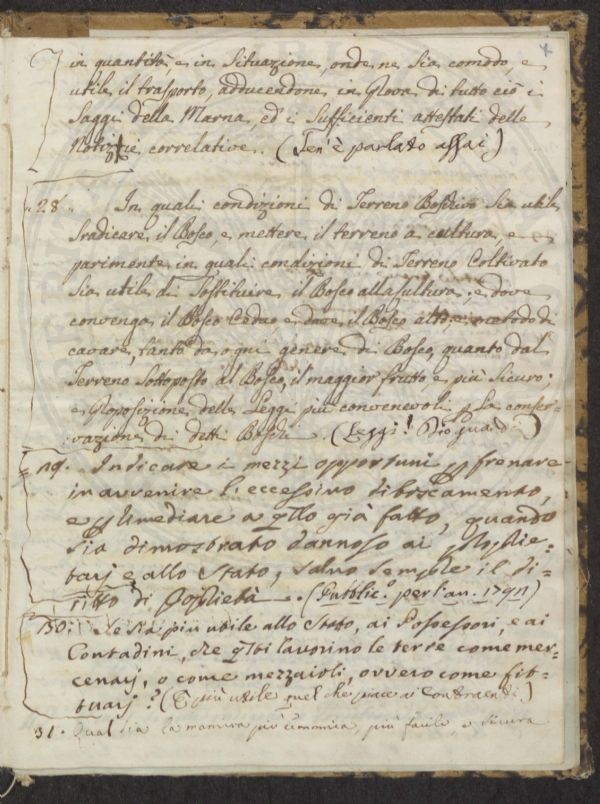 in quantità, e in Situazione, onde ne Sia comodo, e
utile il trasporto, adducendone in Prova di tutto ciò i
Saggi della Marna, ed i Sufficienti attestati delle
Notizie correlative. (Sen'è parlato assai)
28. In quali condizioni di Terreno Boschivo Sia utile
Sradicare il Bosco, e mettere il terreno a cultura, e
parimente in quali condizioni di Terreno Coltivato
Sia utile di Sostituire il Bosco alla Cultura; e dove
convenga il Bosco Ceduo, e dove il Bosco alto: e metodo di
cavare, tanto da ogni genere di Bosco, quanto dal
Terreno Sottoposto al Bosco, il maggior frutto e più Sicuro;
e Proposizione delle Leggi più convenevoli p. la conser-
vazione di detti Boschi. (Leggi! Dio guardi)
29. Indicare i mezzi opportuni p. frenare
in avvenire l'eccessivo diboscamento,
e p. rimediare a qllo già fatto, quando
Sia dimostrato dannoso ai Proprie-
tarj e allo Stato, salvo sempre il Di-
ritto di Proprietà. (Pubblic.o per l'an. 1791)
30. Se sia più utile allo Stato, ai Possessori, e ai
Contadini, che qsti lavorino le terre come mer-
cenarj, o come mezzaioli, ovvero come fit-
tuarj? (È più utile quel che piace ai Contraenti.)
31. Qual sia la maniera più economica, più facile, e sicura